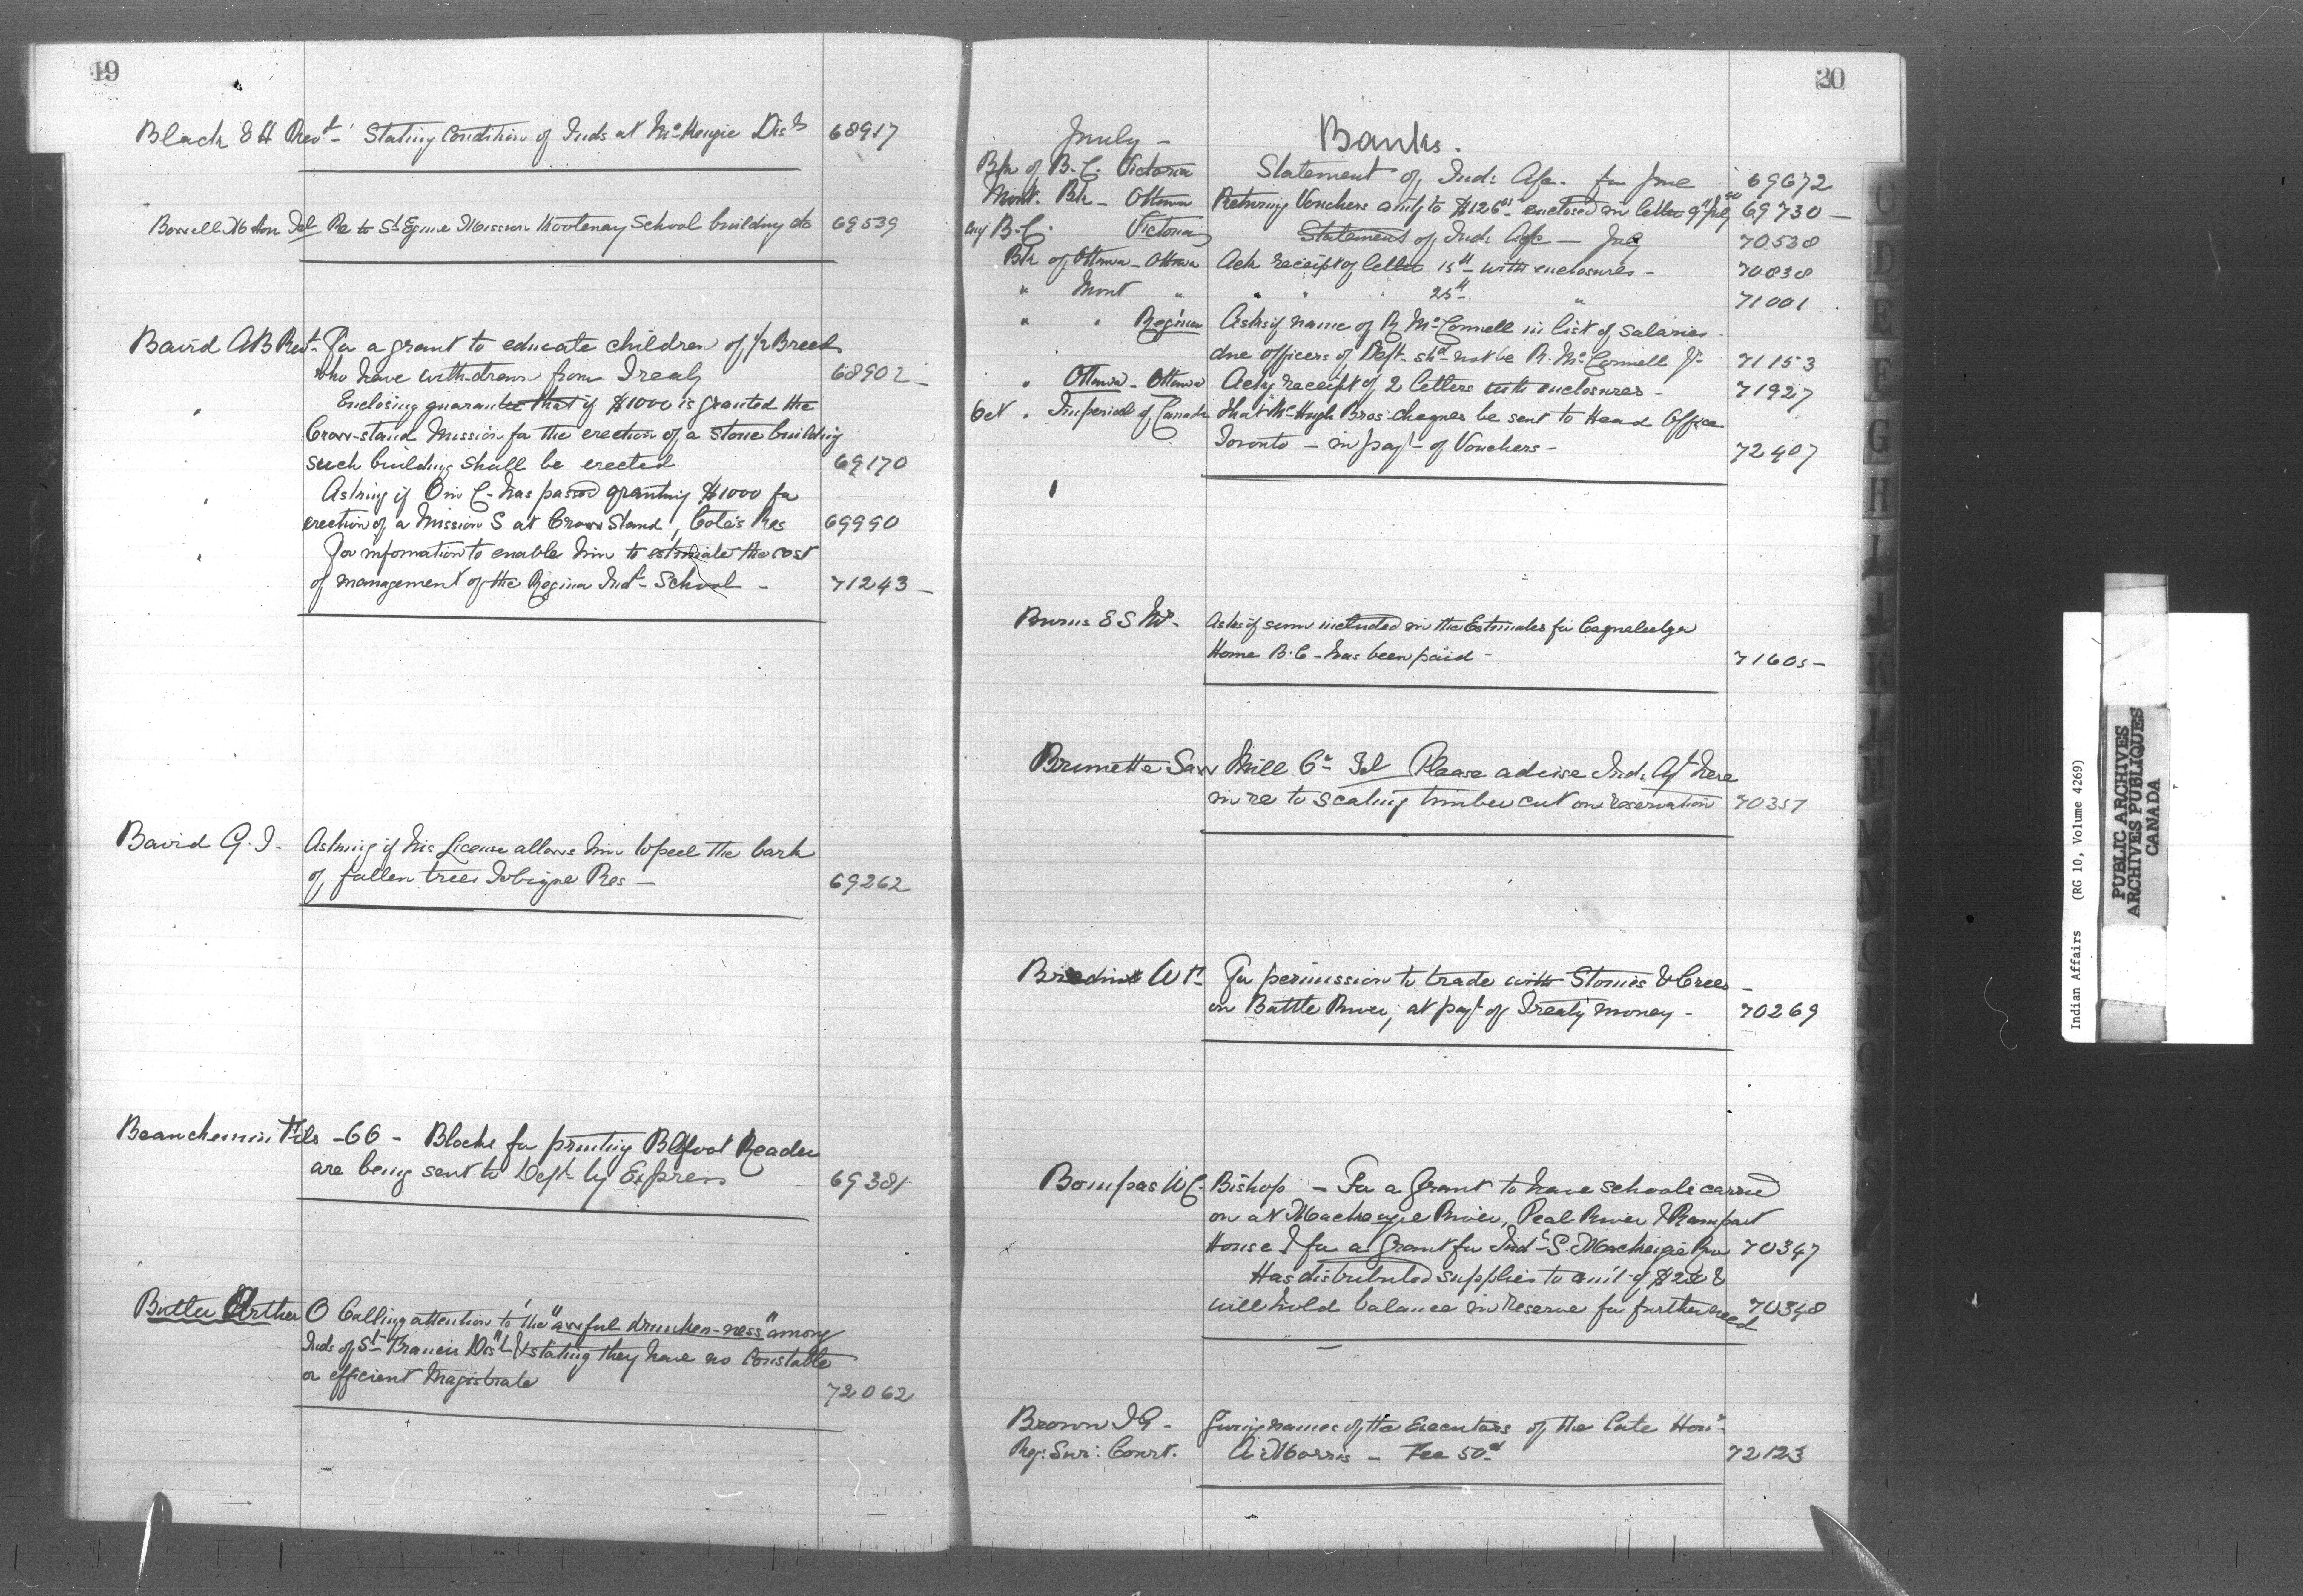 19
Black E H Revd - Stating Condition of Inds at McKenzie Dist 68917
Bowell M Hon Tel Re to St Eugene Mission Kootenay School building &c 69539
Baird AB Revd - For a grant to educate children of ½ Breeds
who have withdrawn from Treaty 68902 -
" Enclosing guarantee that if $1000 is granted the
Crow-stand Mission for the erection of a stone building
such building shall be erected 69170
" Asking if O in C - has passed granting $1000 for
erection of a Mission S at Crow Stand, Cote's Res 69990
" For information to enable him to estimate the cost
of management of the Regina Indl - School - 71243 -
Baird G. T. Asking if his License allows him to peel the bark
of fallen trees Tobique Res - 69262
Beauchemin Fils - 66 - Blocks for printing Blkfoot Reader
are being sent to Dept by Express 69381
Butler Arthur O Calling attention to the "awful drunken-ness" among
Inds of St Francis Dist & stating they have no Constable
or efficient Magistrate 72062
20
July - Banks.
Bk of B. C. Victoria Statement of Ind: A/c - for June 69672
Mont. Bk - Ottawa Returning Vouchers amtg to $126 enclosed in letter 9th July 69730 -
Aug B. C. Victoria Statement of Ind: A/c - July 70538
Bk of Ottawa - Ottawa Ack receipt of letter 15th - with enclosures - 70838
" Mont " " " 25th " 71001
" " Regina Asks if name of R McConnell in list of salaries
due officers of Dept - shd - not be R. McConnell Jr - 71153
" Ottawa - Ottawa Ackg receipt of 2 letters with enclosures - 71927
Oct " Imperial of Canada That McHugh Bros. cheques be sent to Head Office
Toronto - in payt - of Vouchers - 72407
Burns E S Asks if sum included in the Estimates for Coqualeetza
Home B. C - has been paid - 71605 -
Brunette Saw Mill Co Tel Please advise Ind. Agt here
in re to scaling timber cut on reservation 70357
Wm For permission to trade with Stonies & Crees -
on Battle River, at payt of Treaty money - 70269
Bompas W C. Bishop - For a Grant to have schools carried
on at Mackenzie River, Peal River & Rampart
House & for a Grant for Indl S. Mackenzie Riv 70347
Has distributed supplies to amt of $250 &
will hold balance in reserve for further need 70348
Brown J G - Giving names of the Executors of the late Hon
Reg: Sur: Court. A Morris - Fee 50c 72123
C
D
E
F
G
H
I
J
K
Indian Affairs (RG 10, Volume 4269)
PUBLIC ARCHIVES
ARCHIVES PUBLIQUES
CANADA